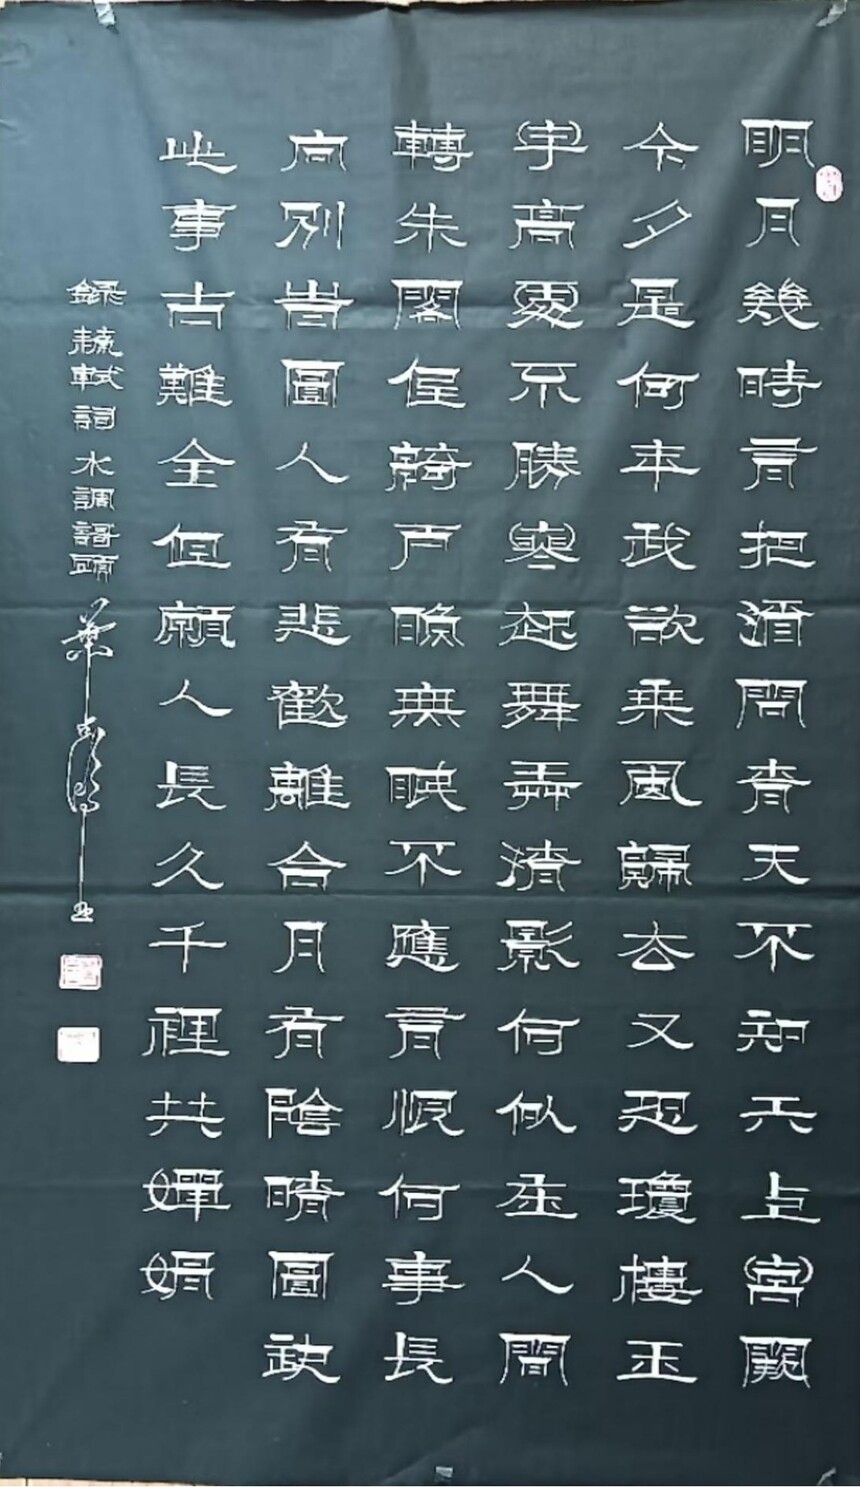 明月幾時有把酒問青天不知天上宮闕
今夕是何年我欲乘風歸去又恐瓊樓玉
宇高處不勝寒起舞弄清影何似在人間
轉朱閣低綺戶照無眠不應有恨何事長
向別時圓人有悲歡離合月有陰晴圓缺
此事古難全但願人長久千裡共嬋娟
錄蘇軾詞水調歌頭